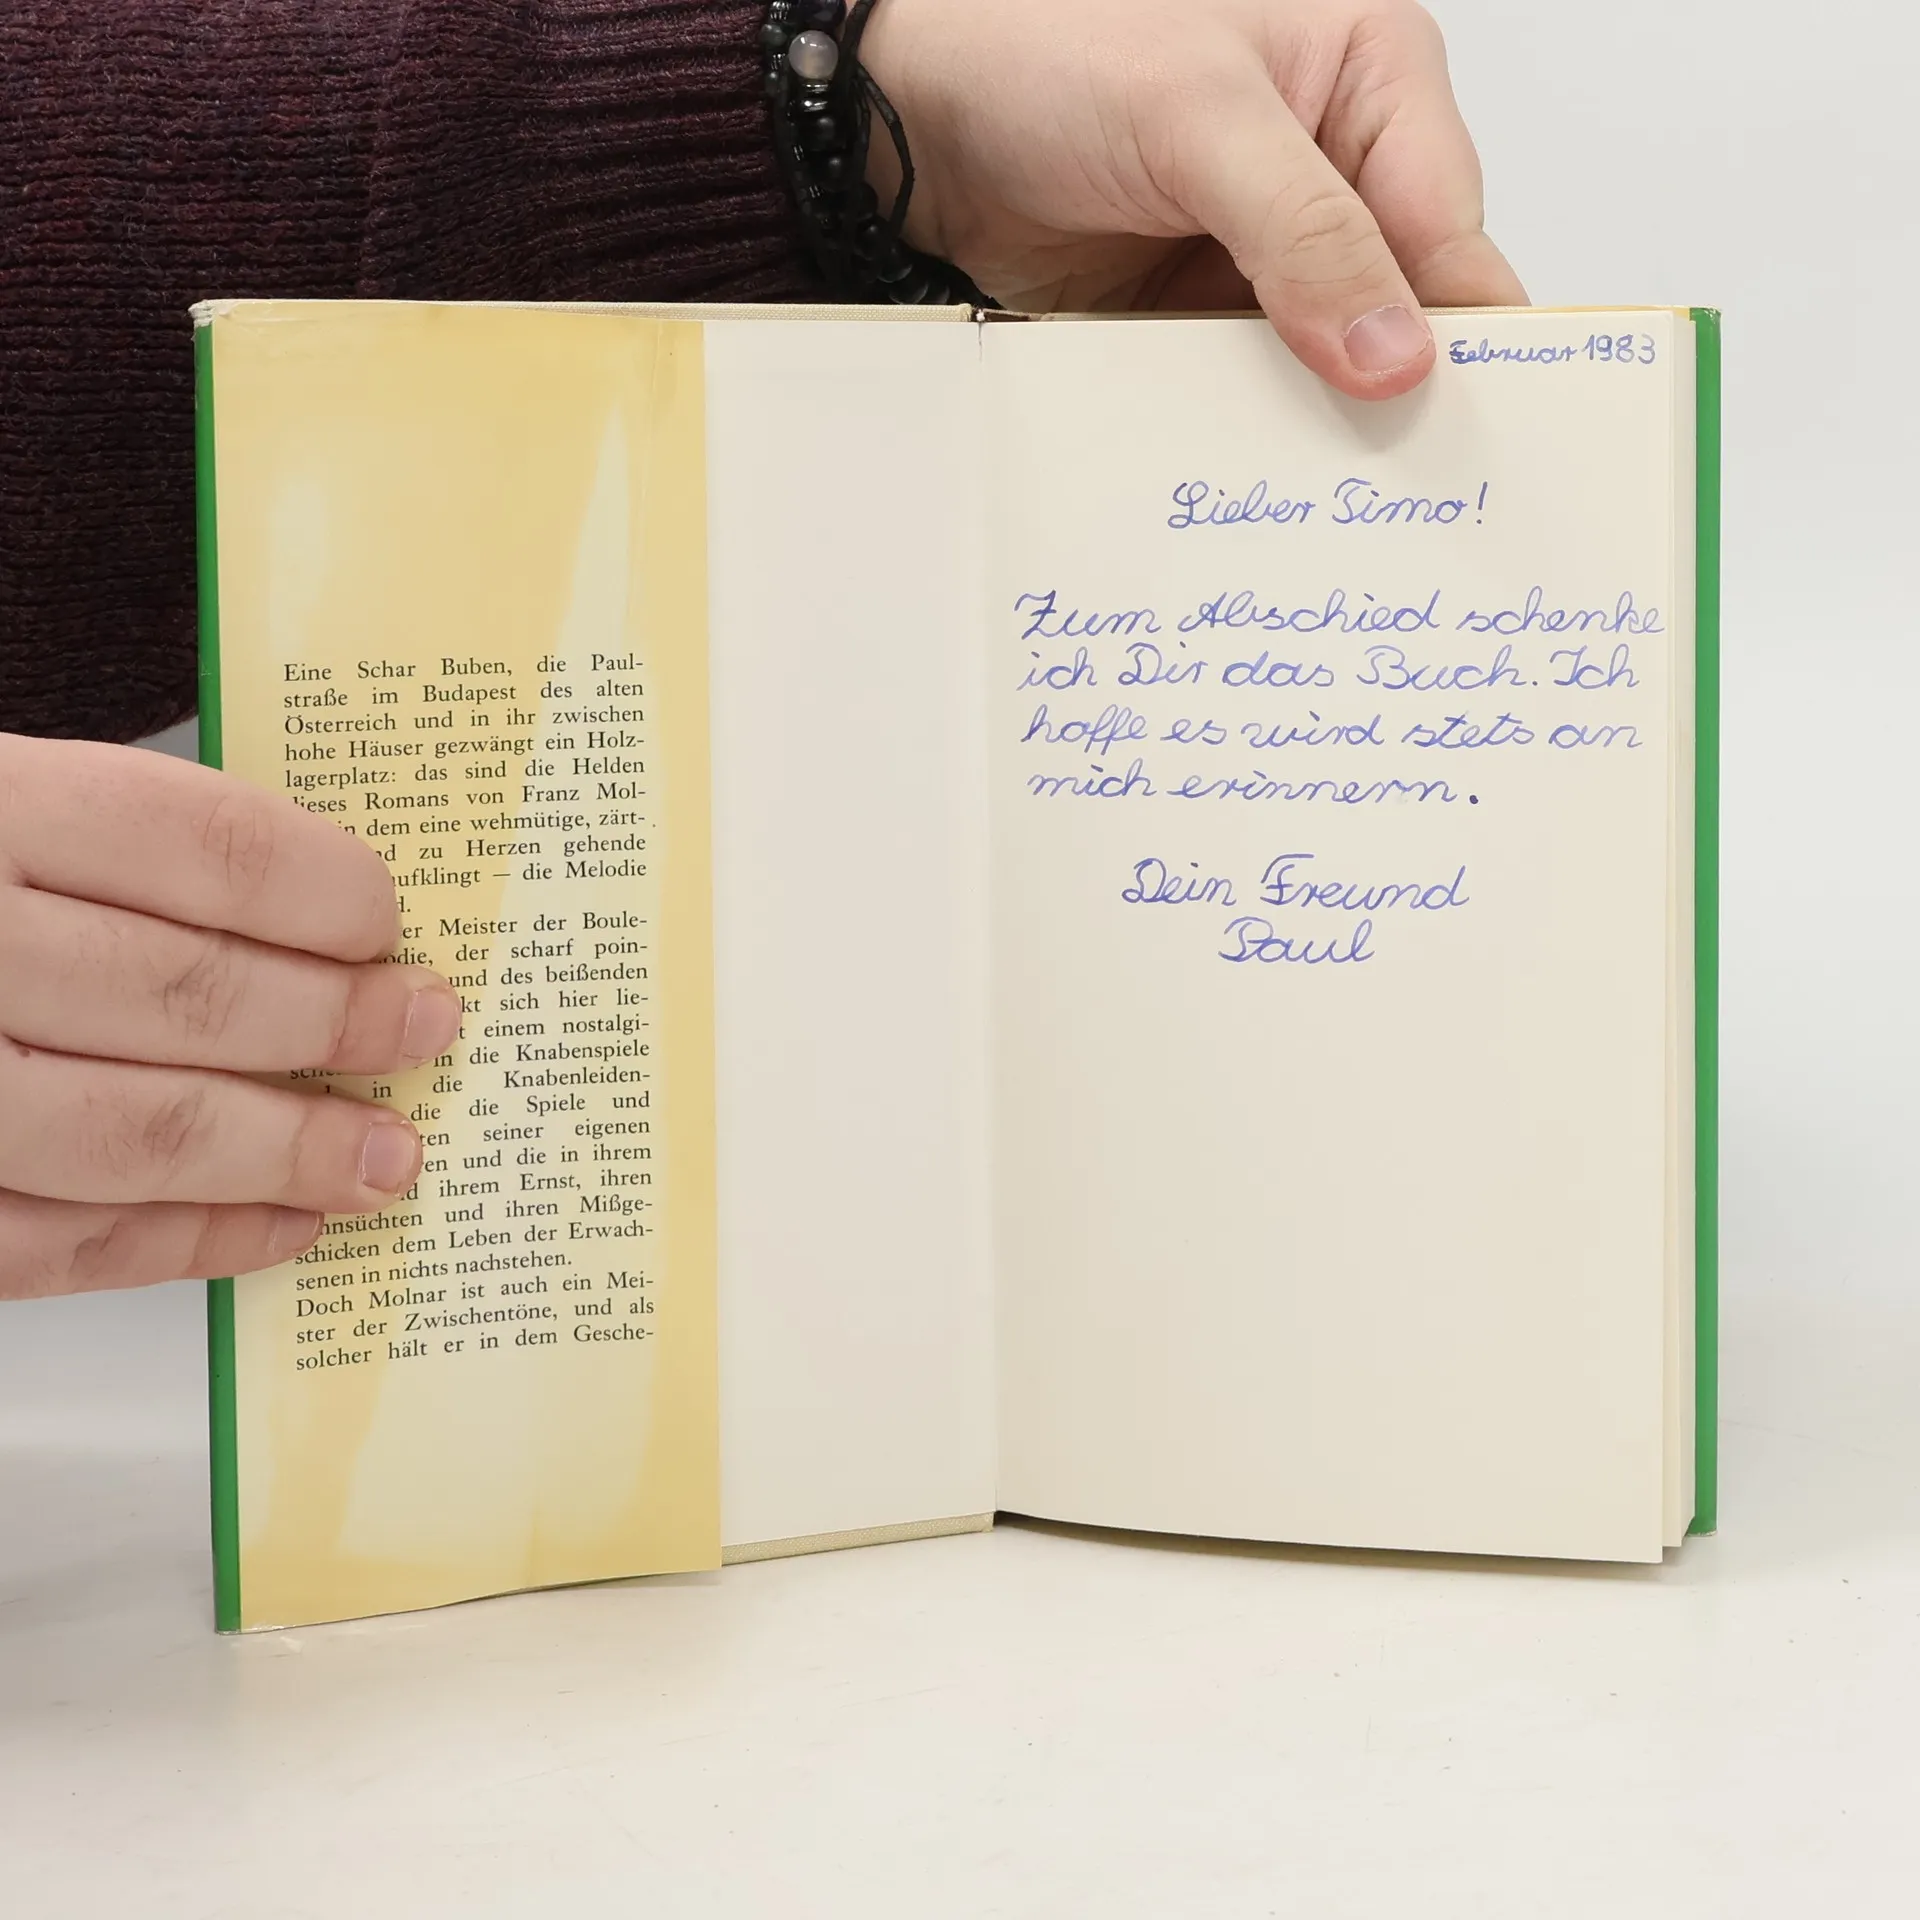 Eine Schar Buben, die Paul-
straße im Budapest des alten
Österreich und in ihr zwischen
hohe Häuser gezwängt ein Holz-
lagerplatz: das sind die Helden
dieses Romans von Franz Mol-
in dem eine wehmütige, zärt-
zu Herzen gehende
aufklingt — die Melodie
er Meister der Boule-
der scharf poin-
und des beißenden
sich hier lie-
einem nostalgi-
in die Knabenspiele
in die Knabenleiden-
die die Spiele und
seiner eigenen
und die in ihrem
ihrem Ernst, ihren
und ihren Mißge-
schicken dem Leben der Erwach-
senen in nichts nachstehen.
Doch Molnar ist auch ein Mei-
ster der Zwischentöne, und als
solcher hält er in dem Gesche-
Februar 1983
Lieber Timo!
Zum Abschied schenke
ich Dir das Buch. Ich
hoffe es wird stets an
mich erinnern.
Dein Freund
Paul